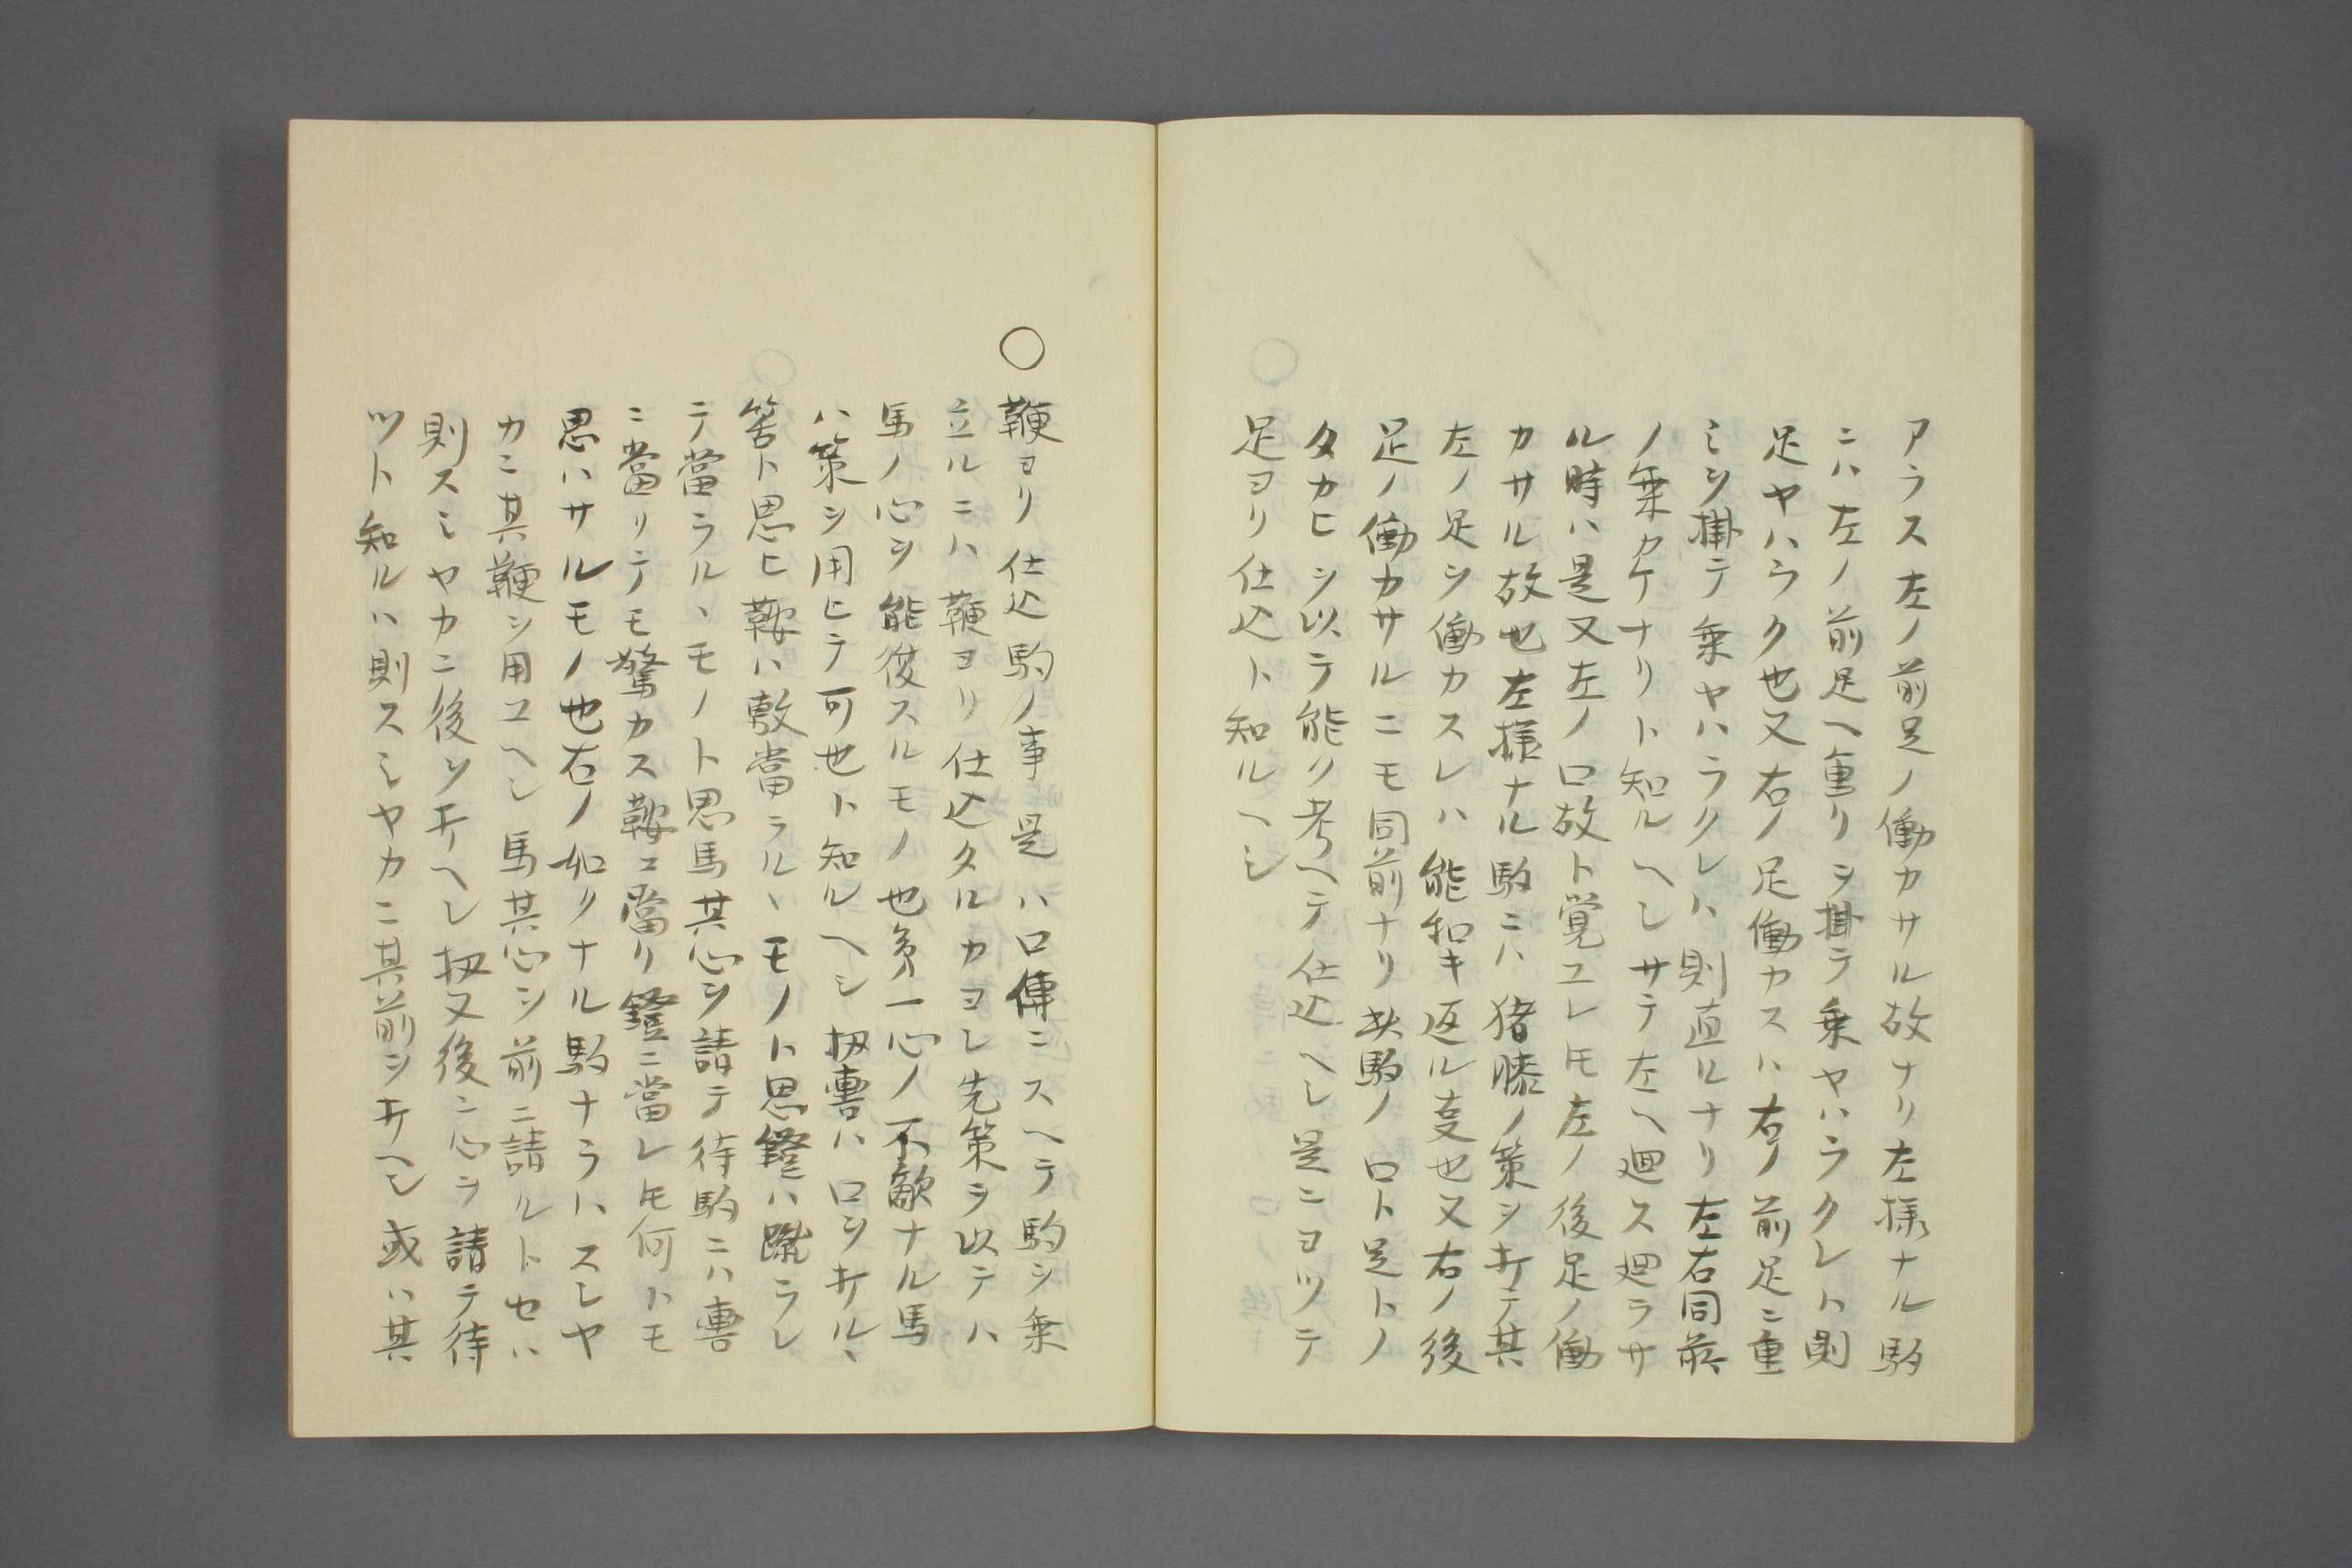 アラス左ノ前足ノ働カサル故ナリ左様ナル駒
ニハ左ノ前足ヘ重リヲ掛テ乗ヤハラクレト則
足ヤハラク也又右ノ足働カスハ右ノ前足ニ重
ミヲ掛テ乗ヤハラクレハ則直ルナリ左右同前
ノ乗カケナリト知ルヘシサテ左ヘ廻ス廻ラサ
ル時ハ是又左ノ口故ト覚ユレ𪜈左ノ後足ノ働
カサル故也左様ナル駒ニハ猪膝ノ策ヲ打テ其
左ノ足ヲ働カスレハ能和キ返ル叓也又右ノ後
足ノ働カサルニモ同前ナリ此駒ノ口ト足トノ
タカヒヲ以テ能ク考ヘテ仕込ヘシ是ニヨツテ
足ヨリ仕込ト知ルヘシ
○鞭ヨリ仕込駒ノ事是ハ口傳ニスヘテ駒ヲ乗
立ルニハ鞭ヨリ仕込タルカヨレ先策ヲ以テハ
馬ノ心ヲ能従スルモノ也第一心ノ不敵ナル馬
ハ策ヲ用ヒテ可也ト知ルヘシ扨轡ハ口ヲ打ル丶
筈ト思ヒ鞍ハ敷當ラル丶モノト思鐙ハ蹴ラレ
テ當ラル丶モノト思馬其心ヲ請テ待駒ニハ轡
ニ當リテモ驚カス鞍ニ當リ鐙ニ當レ𪜈何トモ
思ハサルモノ也右ノ如クナル駒ナラハスミヤ
カニ其鞭ヲ用ユヘシ馬其心ヲ前ニ請ルトセハ
則スミヤカニ後ヲ打ヘシ扨又後ニ心ヲ請テ待
ツト知ルハ則スミヤカニ其前ヲ打ヘシ或ハ其